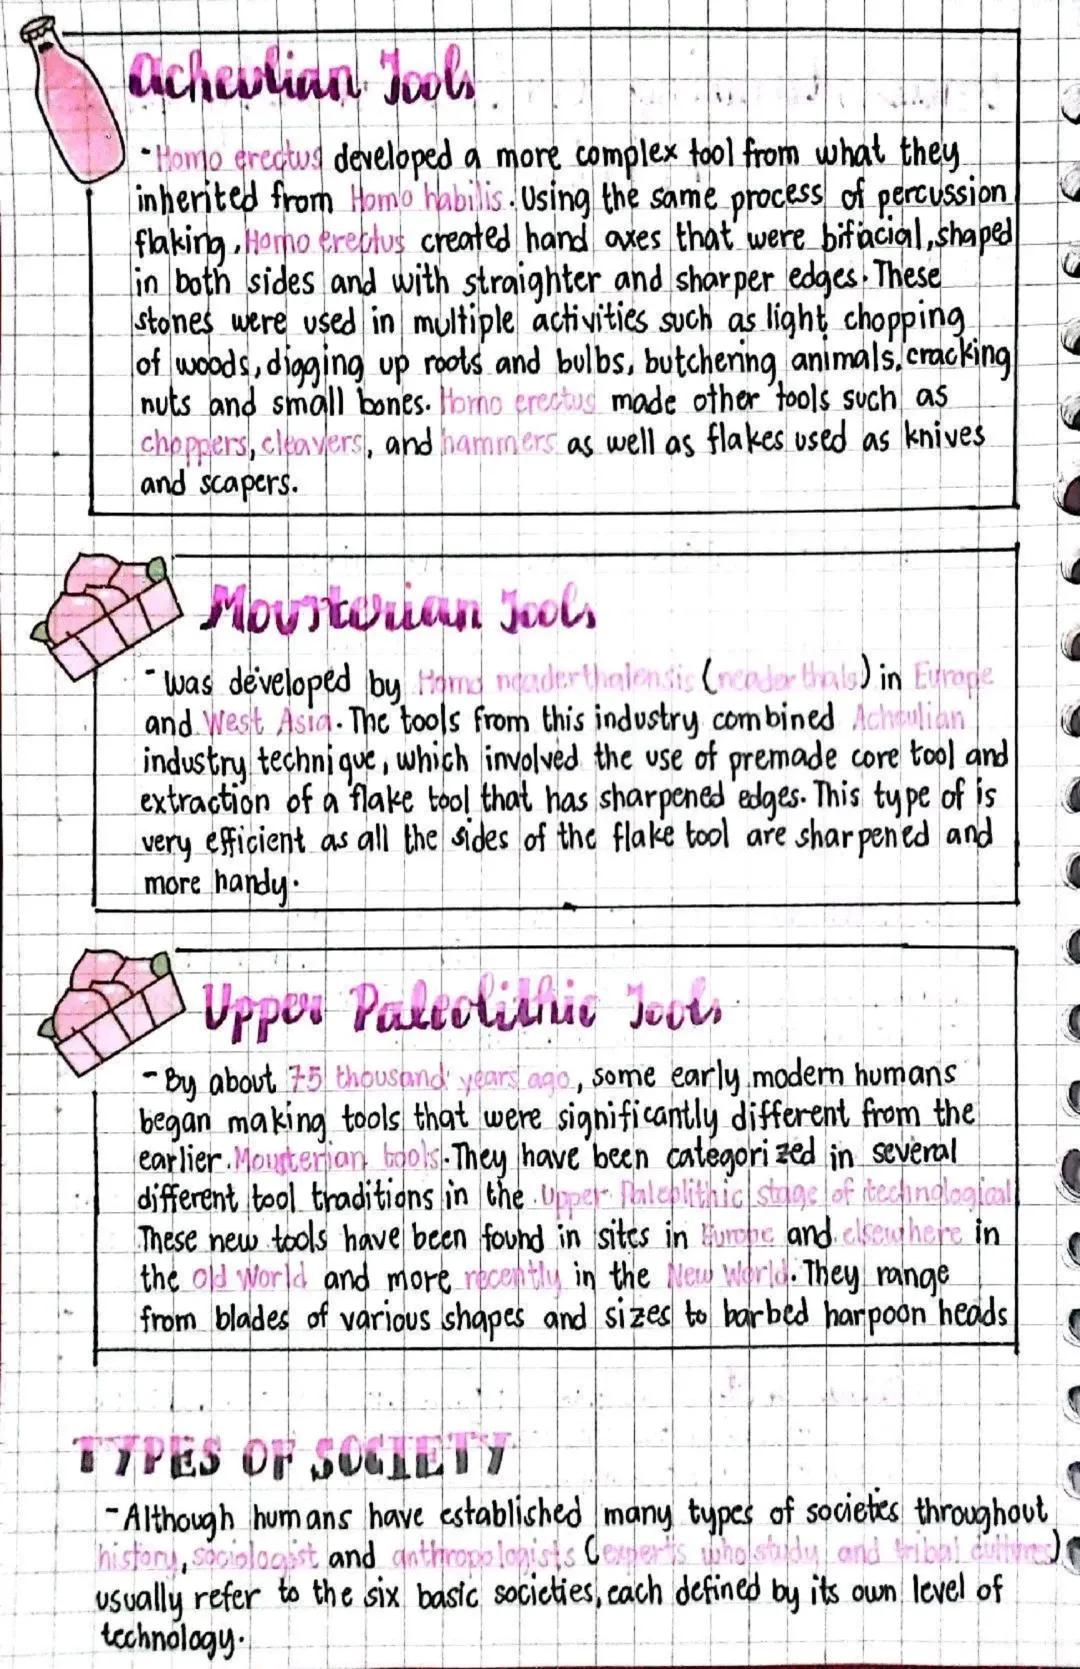 Acheulian Tools
- Homo erectus developed a more complex tool from what they
inherited from Homo habilis. Using the same process of percussion
flaking, Homo erectus created hand axes that were bifacial, shaped
in both sides and with straighter and sharper edges. These
stones were used in multiple activities such as light chopping
of woods, digging up roots and bulbs, butchering animals, cracking
nuts and small bones. Homo erectus made other tools such as
choppers, cleavers, and hammers as well as flakes used as knives
and scapers.
Mousterian Tools
- Was developed by Homo neaderthalensis (neaderthals) in Europe
and West Asia. The tools from this industry combined Acheulian
industry technique, which involved the use of premade core tool and
extraction of a flake tool that has sharpened edges. This type of is
very efficient as all the sides of the flake tool are sharpened and
more handy.
Upper Paleolithic Tools
- By about 75 thousand years ago, some early modern humans
began making tools that were significantly different from the
earlier Mousterian tools. They have been categorized in several
different tool traditions in the Upper Paleolithic stage of technological
These new tools have been found in sites in Europe and elsewhere in
the Old World and more recently in the New World. They range
from blades of various shapes and sizes to barbed harpoon heads
TYPES OF SOCIETY
- Although humans have established many types of societies throughout
history, sociologist and anthropologists (experts who study and tribal cultures)
usually refer to the six basic societies, each defined by its own level of
technology.